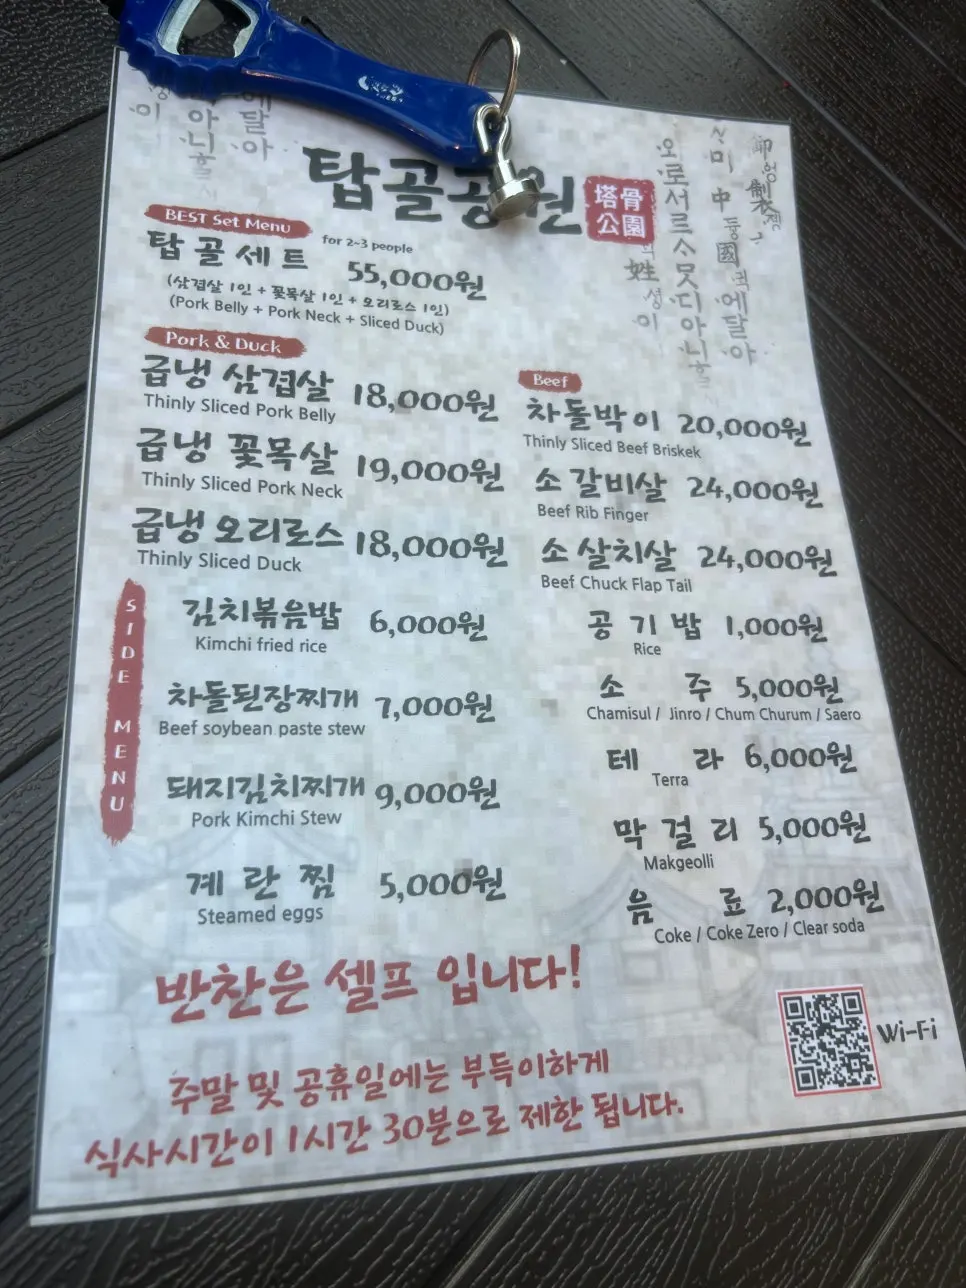 탑골공원
塔骨
公園
BEST Set Menu
for 2~3 people
탑골세트 55,000원
(삼겹살 1인 + 꽃목살 1인 + 오리로스 1인)
(Pork Belly + Pork Neck + Sliced Duck)
Pork & Duck
급냉 삼겹살 18,000원
Thinly Sliced Pork Belly
급냉 꽃목살 19,000원
Thinly Sliced Pork Neck
급냉 오리로스 18,000원
Thinly Sliced Duck
Beef
차돌박이 20,000원
Thinly Sliced Beef Briskek
소갈비살 24,000원
Beef Rib Finger
소살치살 24,000원
Beef Chuck Flap Tail
SIDE MENU
김치볶음밥 6,000원
Kimchi fried rice
차돌된장찌개 7,000원
Beef soybean paste stew
돼지김치찌개 9,000원
Pork Kimchi Stew
계란찜 5,000원
Steamed eggs
공기밥 1,000원
Rice
소주 5,000원
Chamisul / Jinro / Chum Churum / Saero
테라 6,000원
Terra
막걸리 5,000원
Makgeolli
음료 2,000원
Coke / Coke Zero / Clear soda
반찬은 셀프 입니다!
Wi-Fi
주말 및 공휴일에는 부득이하게
식사시간이 1시간 30분으로 제한 됩니다.